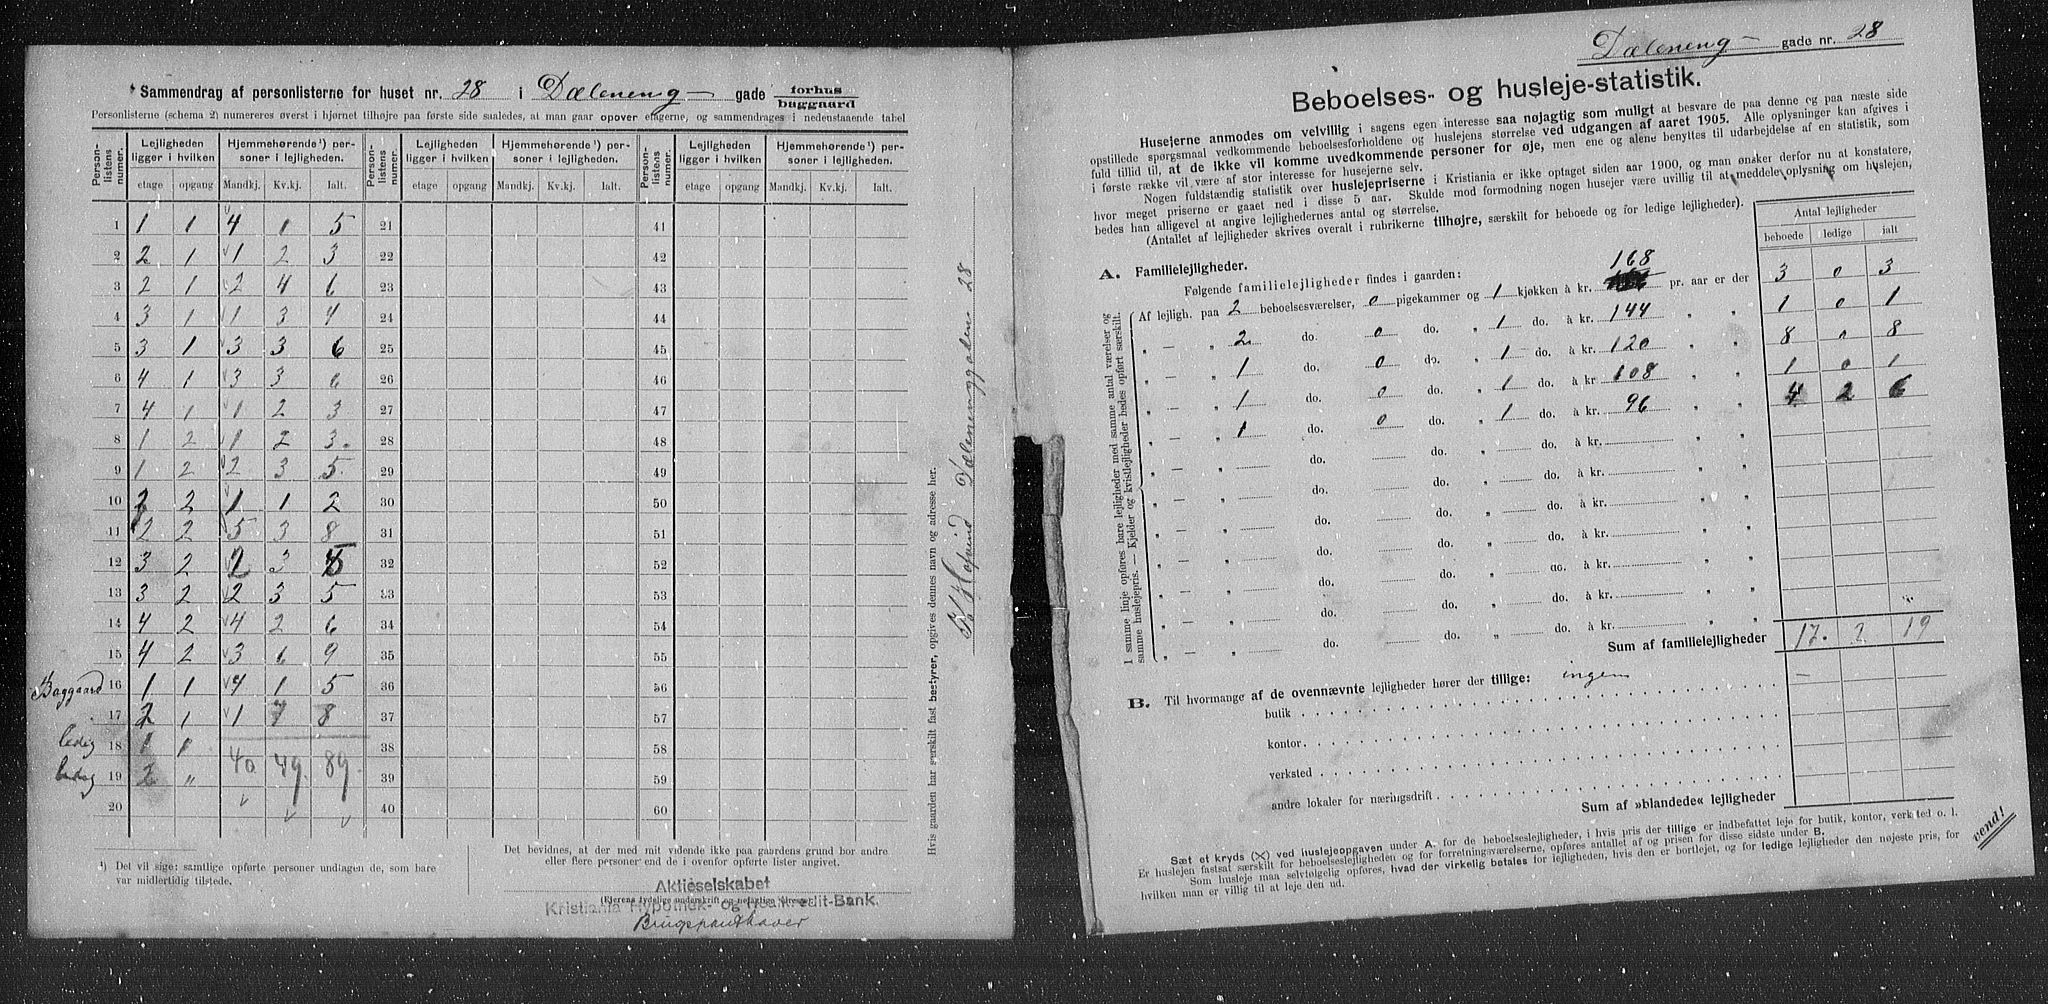 Sammendrag af personlisterne for huset nr. 28 i Dæleneng- gade forhus
baggaard
Personlisterne (schema 2) numereres øverst i hjørnet tilhøjre paa første side saaledes, at man gaar opover etagerne, og sammendrages i nedenstaaende tabel
Person-listens nummer. Lejligheden ligger i hvilken Hjemmehørende¹) personer i lejligheden. Person-listens nummer. Lejligheden ligger i hvilken Hjemmehørende¹) personer i lejligheden. Person-listens nummer. Lejligheden ligger i hvilken Hjemmehørende¹) personer i lejligheden.
etage opgang Mandkj. Kv.kj. Ialt. etage opgang Mandkj. Kv.kj. Ialt. etage opgang Mandkj. Kv.kj. Ialt.
1 1 1 4 1 5 21 41
2 2 1 1 2 3 22 42
3 2 1 2 4 6 23 43
4 3 1 1 3 4 24 44
5 3 1 3 3 6 25 45
6 4 1 3 3 6 26 46
7 4 1 1 2 3 27 47
8 1 2 1 2 3 28 48
9 1 2 2 3 5 29 49
10 2 2 1 1 2 30 50
11 2 2 5 3 8 31 51
12 3 2 2 3 5 32 52
13 3 2 2 3 5 33 53
14 4 2 4 2 6 34 54
15 4 2 3 6 9 35 55
Baggaard 16 1 1 4 1 5 36 56
17 2 1 1 7 8 37 57
ledig 18 1 " 38 58
ledig 19 2 " 40. 49. 89. 39 59
20 40 60
¹) Det vil sige: samtlige opførte personer undtagen de, som bare
var midlertidig tilstede.
Det bevidnes, at der med mit vidende ikke paa gaardens grund bor andre
eller flere personer end de i ovenfor opførte lister angivet.
Aktieselskabet
(Eierens tydelige underskrift og nøiagtige adresse)
Kristiania Hypothek- og Realkredit-Bank.
Brugspanthaver
Hvis gaarden har særskilt fast bestyrer, opgives dennes navn og adresse her.
K. Hofvind Dælenenggaden 28
Dæleneng- gade nr. 28
Beboelses- og husleje-statistik.
Husejerne anmodes om velvillig i sagens egen interesse saa nøjagtig som muligt at besvare de paa denne og paa næste side
opstillede spørgsmaal vedkommende beboelsesforholdene og huslejens størrelse ved udgangen af aaret 1905. Alle oplysninger kan afgives i
fuld tillid til, at de ikke vil komme uvedkommende personer for øje, men ene og alene benyttes til udarbejdelse af en statistik, som
i første række vil være af stor interesse for husejerne selv.
Nogen fuldstændig statistik over huslejepriserne i Kristiania er ikke optaget siden aar 1900, og man ønsker derfor nu at konstatere,
hvor meget priserne er gaaet ned i disse 5 aar. Skulde mod formodning nogen husejer være uvillig til at meddele oplysning om huslejen,
bedes han alligevel at angive lejlighedernes antal og størrelse.
(Antallet af lejligheder skrives overalt i rubrikerne tilhøjre, særskilt for beboede og for ledige lejligheder).
Antal lejligheder
beboede ledige ialt
A. Familielejligheder.
Følgende familielejligheder findes i gaarden:
I samme linje opføres bare lejligheder med samme antal værelser og
samme huslejepris. — Kjelder og kvistlejligheder bedes opført særskilt.
168
Af lejligh. paa 2 beboelsesværelser, 0 pigekammer og 1 kjøkken à kr. pr. aar er der 3 0 3
" — " 2 do. 0 do. " 1 do. à kr. 144 " " 1 0 1
" — " 1 do. 0 do. " 1 do. à kr. 120 " " 8 0 8
" — " 1 do. 0 do. " 1 do. à kr. 108 " " 1 0 1
" — " 1 do. 0 do. " 1 do. à kr. 96 " " 4 2 6
" — " do. do. " do. à kr. " "
" — " do. do. " do. à kr. " "
" — " do. do. " do. à kr. " "
" — " do. do. " do. à kr. " "
" — " do. do. " do. à kr. " "
" — " do. do. " do. à kr. " "
" — " do. do. " do. à kr. " "
Sum af familielejligheder 17. 2 19
B. Til hvormange af de ovennævnte lejligheder hører der tillige: ingen —
butik
kontor
verksted
andre lokaler for næringsdrift
Sum af »blandede« lejligheder
Sæt et kryds (X) ved huslejeopgaven under A. for de beboelseslejligheder, i hvis pris der tillige er indbefattet leje for butik, kontor, verksted o. l.
Er huslejen fastsat særskilt for beboelseslejligheden og for forretningsværelserne, opføres antallet af og prisen for disse sidste under B.
Som husleje maa selvfølgelig opføres, hvad der virkelig betales for lejligheden, hvis den er bortlejet, og for ledige lejligheder den nøjeste pris, for
hvilken man er villig til at leje den ud.
vend!